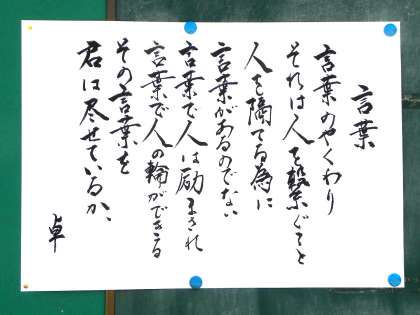 言葉
言葉のやくわり
それは人を繋ぐこと
人を隔てる為に
言葉があるのでない
言葉で人は励まされ
言葉で人の輪ができる
その言葉を
君は尽せているか、
卓